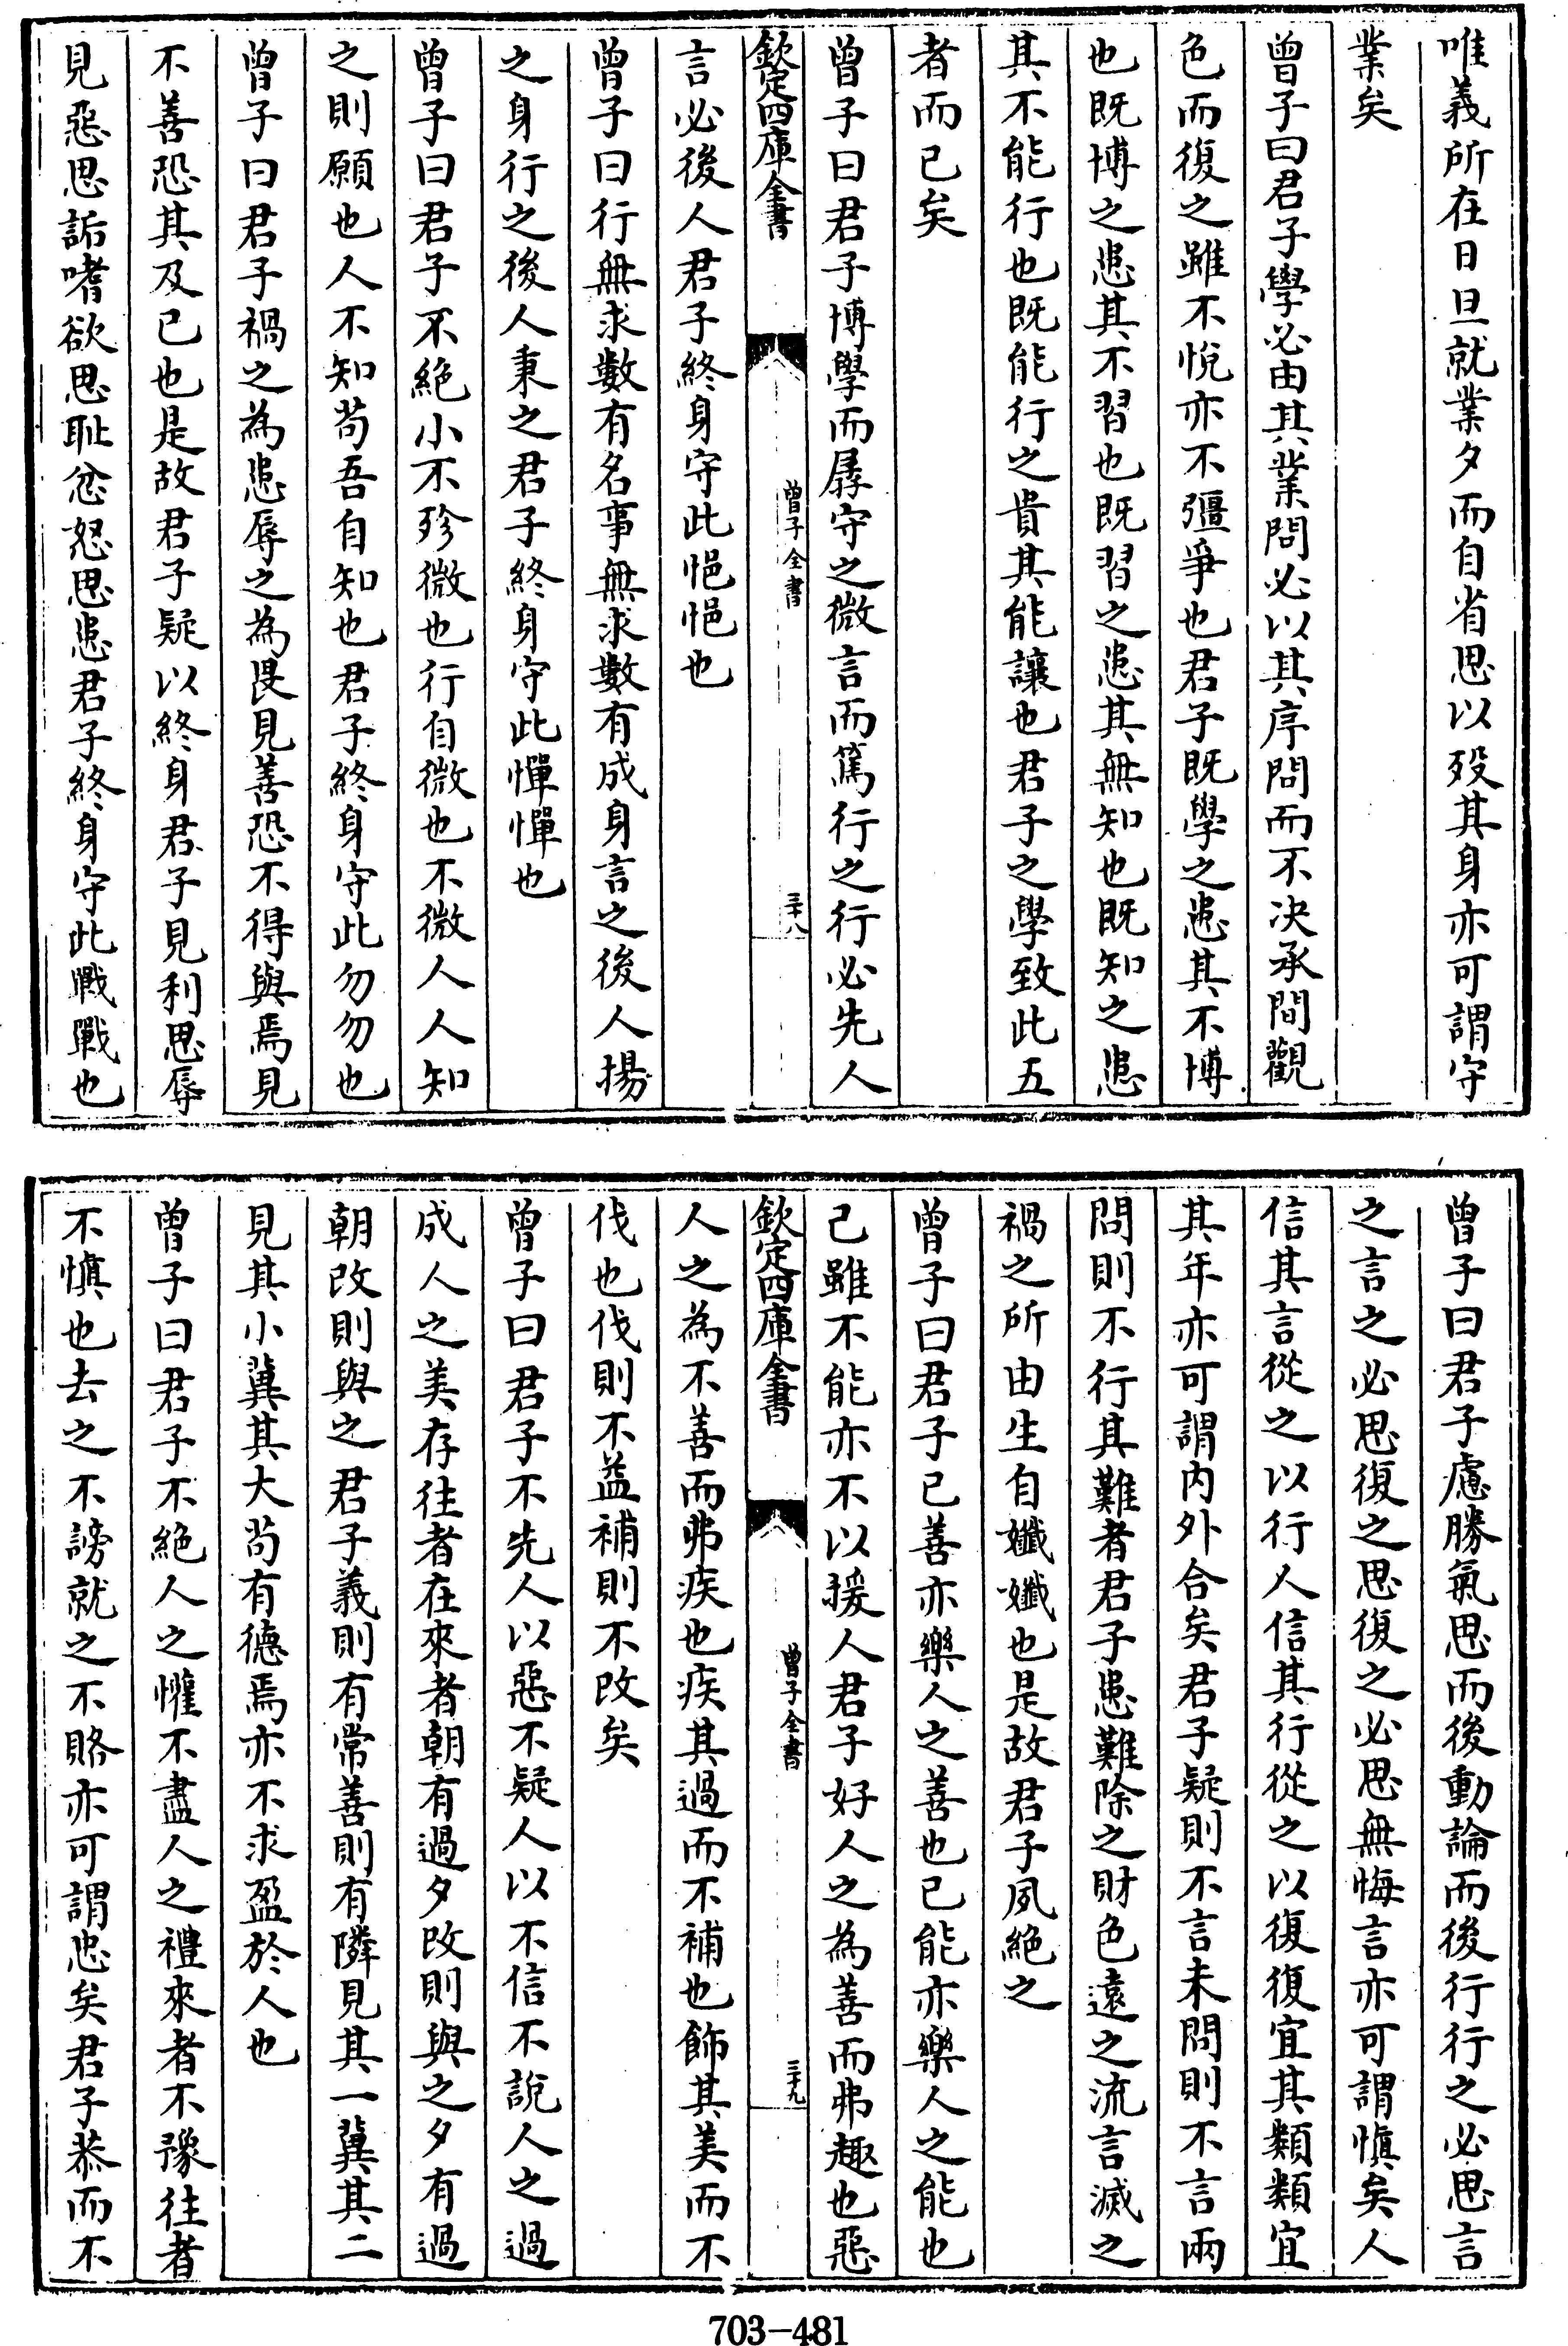 唯義所在日旦就業夕而自省思以歿其身亦可謂守
業矣
曾子曰君子學必由其業問必以其序問而不决承間觀
色而復之雖不悅亦不彊爭也君子既學之患其不博
也既博之患其不習也既習之患其無知也既知之患
其不能行也既能行之貴其能讓也君子之學致此五
者而已矣
曾子曰君子博學而孱守之微言而篤行之行必先人
欽定四庫全書
曾子全書
三十八
言必後人君子終身守此悒悒也
曾子曰行無求數有名事無求數有成身言之後人揚
之身行之後人秉之君子終身守此憚憚也
曾子曰君子不絶小不殄微也行自微也不微人人知
之則願也人不知苟吾自知也君子終身守此勿勿也
曾子曰君子禍之為患辱之為畏見善恐不得與焉見
不善恐其及已也是故君子疑以終身君子見利思辱
見惡思詬嗜欲思耻忿怒思患君子終身守此戰戰也
曾子曰君子慮勝氣思而後動論而後行行之必思言
之言之必思復之思復之必思無悔言亦可謂慎矣人
信其言從之以行人信其行從之以復復宜其類類宜
其年亦可謂内外合矣君子疑則不言未問則不言兩
問則不行其難者君子患難除之財色遠之流言滅之
禍之所由生自孅孅也是故君子夙絶之
曾子曰君子已善亦樂人之善也已能亦樂人之能也
己雖不能亦不以援人君子好人之為善而弗趣也惡
欽定四庫全書
曾子全書
三十九
人之為不善而弗疾也疾其過而不補也飾其美而不
伐也伐則不益補則不改矣
曾子曰君子不先人以惡不疑人以不信不說人之過
成人之美存往者在來者朝有過夕改則與之夕有過
朝改則與之君子義則有常善則有隣見其一冀其二
見其小冀其大苟有德焉亦不求盈於人也
曾子曰君子不絶人之懽不盡人之禮來者不豫往者
不慎也去之不謗就之不賂亦可謂忠矣君子恭而不
703-481